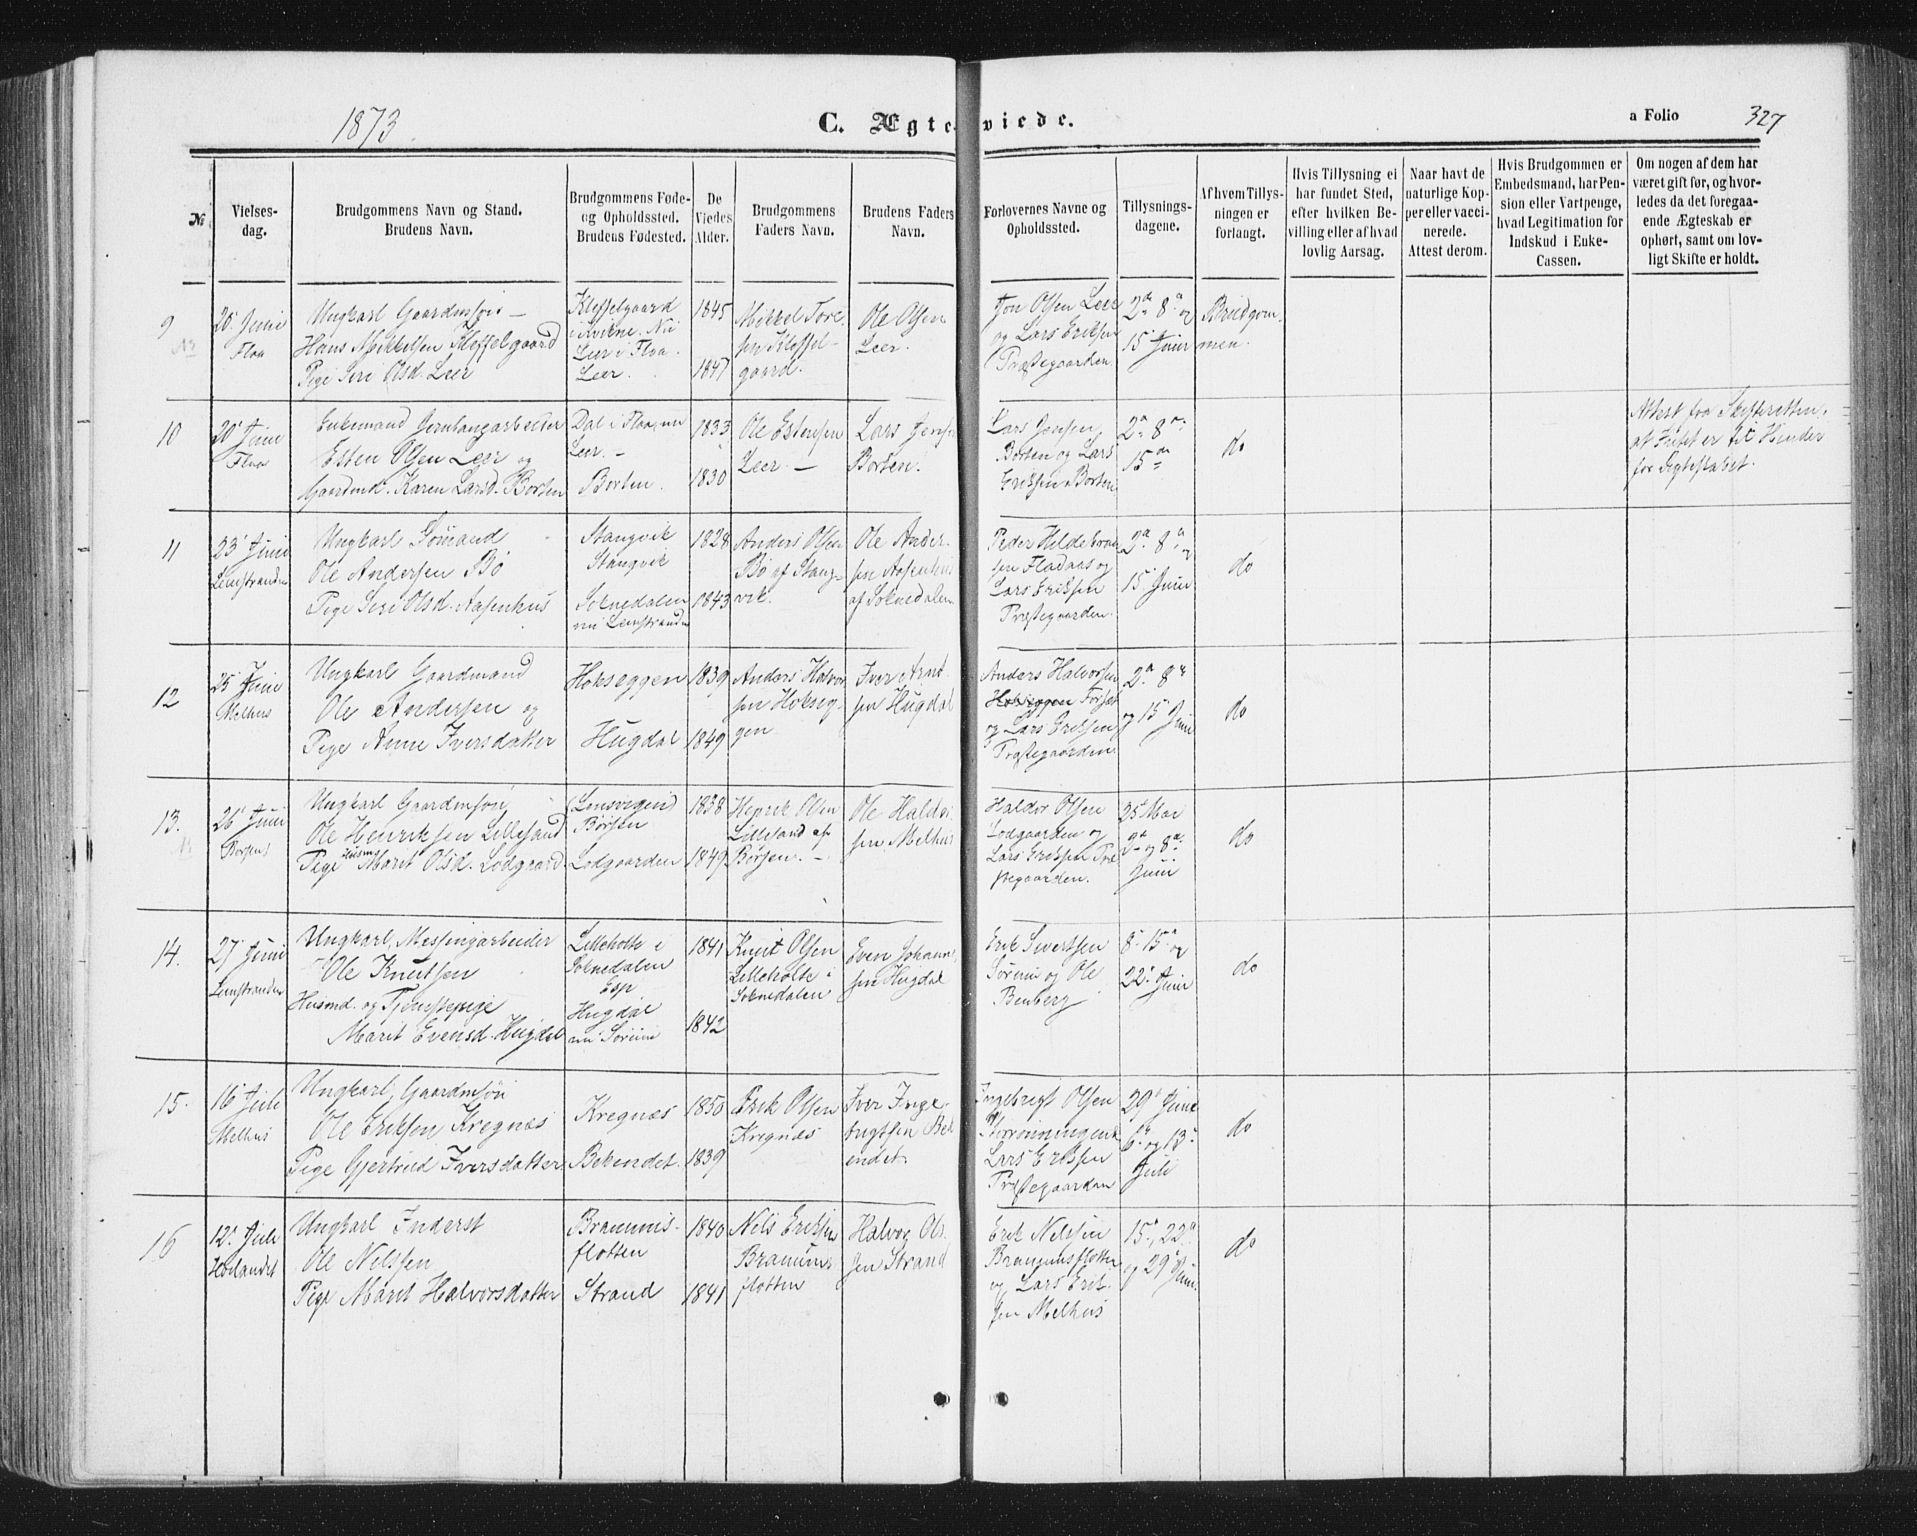 1873
C. Ægteviede.
a Folio 327
№
Vielses-
dag.
Brudgommens Navn og Stand.
Brudens Navn.
Brudgommens Føde-
og Opholdssted.
Brudens Fødested.
De
Viedes
Alder.
Brudgommens
Faders Navn.
Brudens Faders
Navn.
Forlovernes Navne og
Opholdssted.
Tillysnings-
dagene.
Af hvem Tillys-
ningen er
forlangt.
Hvis Tillysning ei
har fundet Sted,
efter hvilken Be-
villing eller af hvad
lovlig Aarsag.
Naar havt de
naturlige Kop-
per eller vacci-
nerede.
Attest derom.
Hvis Brudgommen er
Embedsmand, har Pen-
sion eller Vartpenge,
hvad Legitimation for
Indskud i Enke-
Cassen.
Om nogen af dem har
været gift før, og hvor-
ledes da det foregaa-
ende Ægteskab er
ophørt, samt om lov-
ligt Skifte er holdt.
9
20 Juni
Flaa
Ungkarl Gaardmsøn
Hans Mikkelsen Kleffelgaard
Pige Seri Olsd. Leer
Kleffelgaard
i Kvikne. Nu
Leer i Flaa.
Leer.
1845
1847
Mikkel Tore-
sen Kleffel-
gaard.
Ole Olsen
Leer.
Jon Olsen Leer
og Lars Eriksen
Præstegaarden
2den 8de og
15 Juni
Brudgom-
men.
10
20 Juni
Flaa
Enkemand Jernbanearbeider
Esten Olsen Leer og
Gaardmk. Karen Larsd. Borten
Dal i Flaa, nu
Leer. -
Borten.
1833
1830
Ole Estensen
Leer. -
Lars Jensen
Borten.
Lars Jensen
Borten og Lars
Eriksen Borten
2a 8de
15de
do
Attest fra Skifteretten,
at Intet er til Hinder
for Ægteskabet.
11
23 Juni
Leinstranden
Ungkarl Sømand
Ole Andersen Bö
Pige Seri Olsd. Aasenhus
Stangvik
Stangvik
Soknedalen
nu Leinstranden
1828
1843
Anders Olsen
Bö af Stang-
vik.
Ole Ander-
sen Aasenhus
af Soknedalen
Peder Hildebrand-
sen Fladaas og
Lars Eriksen
Præstegaarden.
2a 8a og
15 Juni
do
12
25 Juni
Melhus
Ungkarl Gaardmand
Ole Andersen og
Pige Anne Iversdatter
Hokseggen
Hugdal
1839
1849
Anders Halvor-
sen Hokseg-
gen
Iver Arnt-
sen Hugdal
Anders Halvorsen
Hokseggen Forset
og Lars Eriksen
Præstegaarden
2a 8a
og 15 Juni
do
13.
26 Juni
Børsen
Ungkarl Gaardmsøn
Ole Henriksen Lillesand
Pige Husm Marit Olsd. Lodgaard.
(Lensvigen)
Börsen
Lodgaarden
1838
1849
Henrik Olsen
Lillesand af
Börsen. -
Ole Haldor-
sen Melhus
Haldor Olsen
Lodgaarden og
Lars Eriksen Præ-
stegaarden.
25 Mai
2a og 8de
Juni
do
14.
27 Juni
Leinstranden
Ungkarl, Messingarbeider
Ole Knutsen
Husmd. og Tjenstepige
Marit Evensd. Hugdal
Lilleholte i
Soknedalen
Esp
Hugdal
nu Sörum
1841
1842
Knut Olsen
Lilleholte i
Soknedalen
Even Johann-
sen Hugdal
Erik Sivertsen
Sörum og Ole
Benberg
8 15 og
22 Juni
do
15.
16 Juli
Melhus
Ungkarl, Gaardmsøn
Ole Eriksen Kregnæs
Pige Gjertrud Iversdatter
Kregnæs
Bekendet.
1850
1839
Erik Olsen
Kregnæs
Iver Inge-
brigtsen Bek-
endet.
Ingebrigt Olsen
Storrønningen &
Lars Eriksen
Præstegaarden
29 Juni
6 og 13
Juli
do
16
12 Juli
Hölandet
Ungkarl Inderst
Ole Nelssen
Pige Marit Halvorsdatter
Bramms-
flotten
Strand
1840
1841
Nels Eriksen
Bramms-
flotten
Halvor Ol-
sen Strand
Erik Nelssen
Brammsflotten
og Lars Erik-
sen Melhus
15, 22
og 29 Juni
do